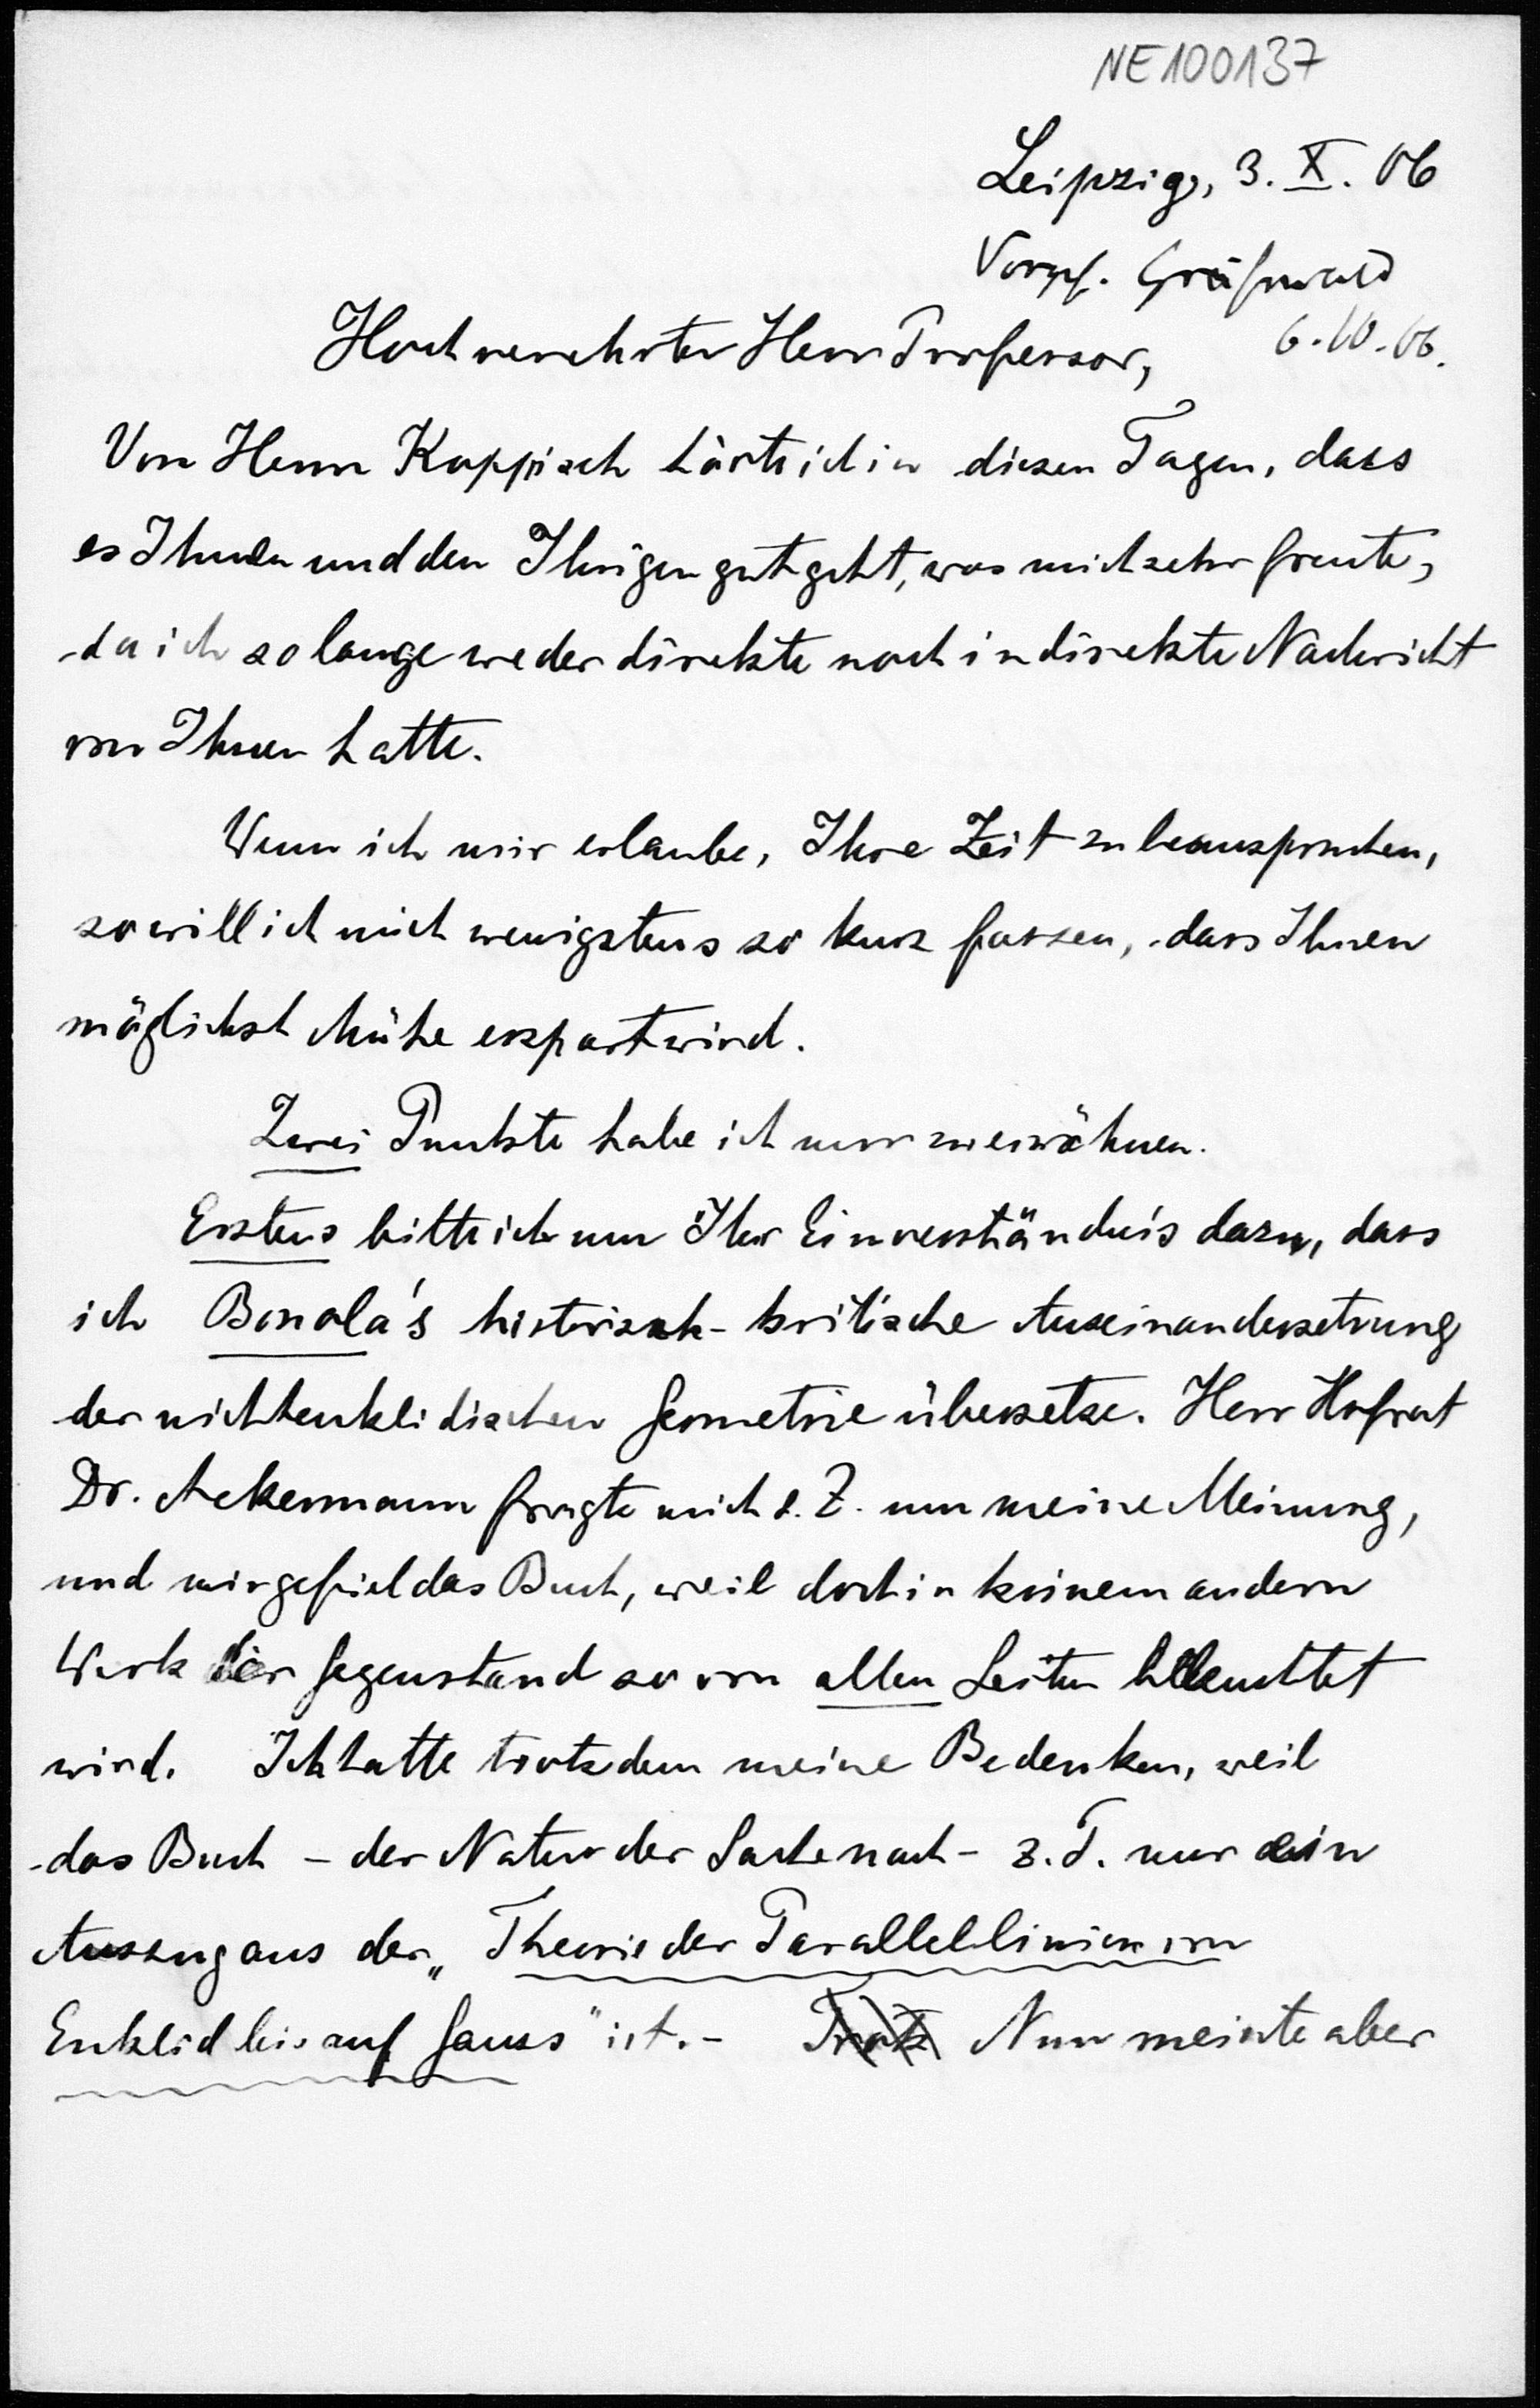 NE100137
Leipzig, 3. X. 06
Greifswald
6.10.06.
Hochverehrter Herr Professor,
Von Herrn Koppisch hörte ich in diesen Tagen, dass
es Ihnen und den Ihrigen gut geht, was mich sehr freute,
da ich so lange weder direkte noch indirekte Nachricht
von Ihnen hatte.
Wenn ich mir erlaube, Ihre Zeit zu beanspruchen,
so will ich mich wenigstens so kurz fassen, dass Ihnen
möglichst Mühe erspart wird.
Zwei Punkte habe ich nur zu erwähnen.
Erstens bitte ich um Ihr Einverständnis dazu, dass
ich Bonola's historisch-kritische Auseinandersetzung
der nichteuklidischen Geometrie übersetze. Herr Hofrat
Dr. Ackermann fragte mich s. Z. um meine Meinung,
und mir gefiel das Buch, weil doch in keinem andern
Werk der Gegenstand so von allen Seiten beleuchtet
wird. Ich hatte trotzdem meine Bedenken, weil
das Buch - der Natur der Sache nach - z. T. nur ein
Auszug aus der „Theorie der Parallellinien von
Euklid bis auf Gauss" ist. - Trotz Nun meinte aber